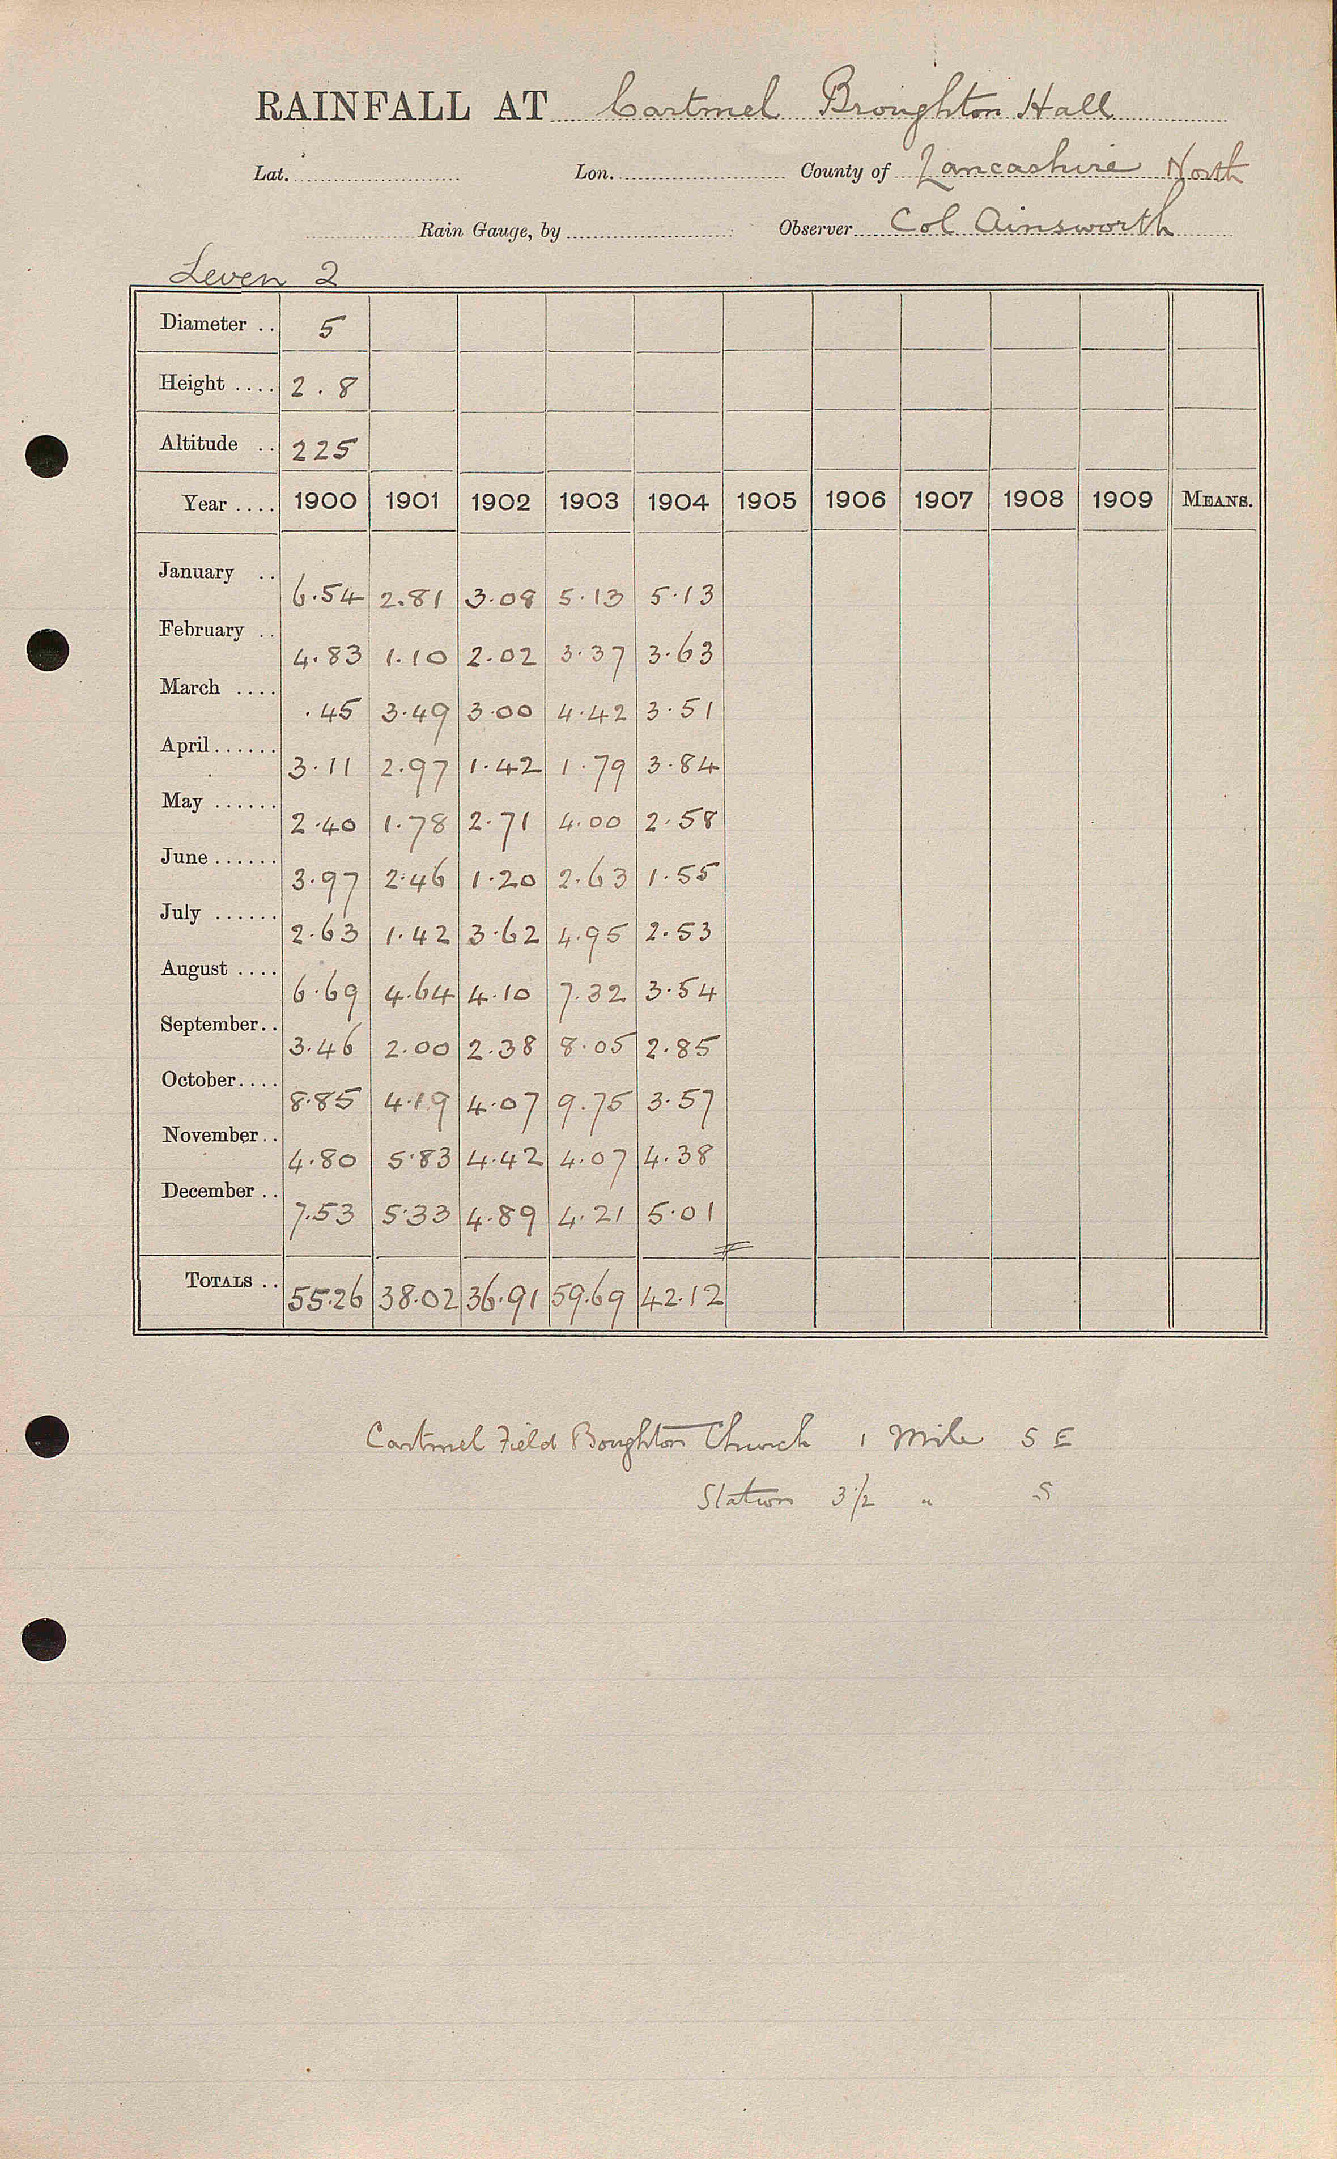 RAINFALL AT Cartmel Broughton Hall
Lat. Lon. County of Lancashire North
Rain Gauge, by Observer Col Ainsworth
Leven 2
Diameter .. 5
Height .... 2.8
Altitude .. 225
Year .... 1900 1901 1902 1903 1904 1905 1906 1907 1908 1909 MEANS.
January .. 6.54 2.81 3.08 5.13 5.13
February .. 4.83 1.10 2.02 3.37 3.63
March .... .45 3.49 3.00 4.42 3.51
April...... 3.11 2.97 1.42 1.79 3.84
May ...... 2.40 1.78 2.71 4.00 2.58
June...... 3.97 2.46 1.20 2.63 1.55
July ...... 2.63 1.42 3.62 4.95 2.53
August .... 6.69 4.64 4.10 7.32 3.54
September.. 3.46 2.00 2.38 8.05 2.85
October.... 8.85 4.19 4.07 9.75 3.57
November.. 4.80 5.83 4.42 4.07 4.38
December .. 7.53 5.33 4.89 4.21 5.01
TOTALS .. 55.26 38.02 36.91 59.69 42.12
Cartmel Field Boughton Church 1 Mile S E
Station 3½ " S